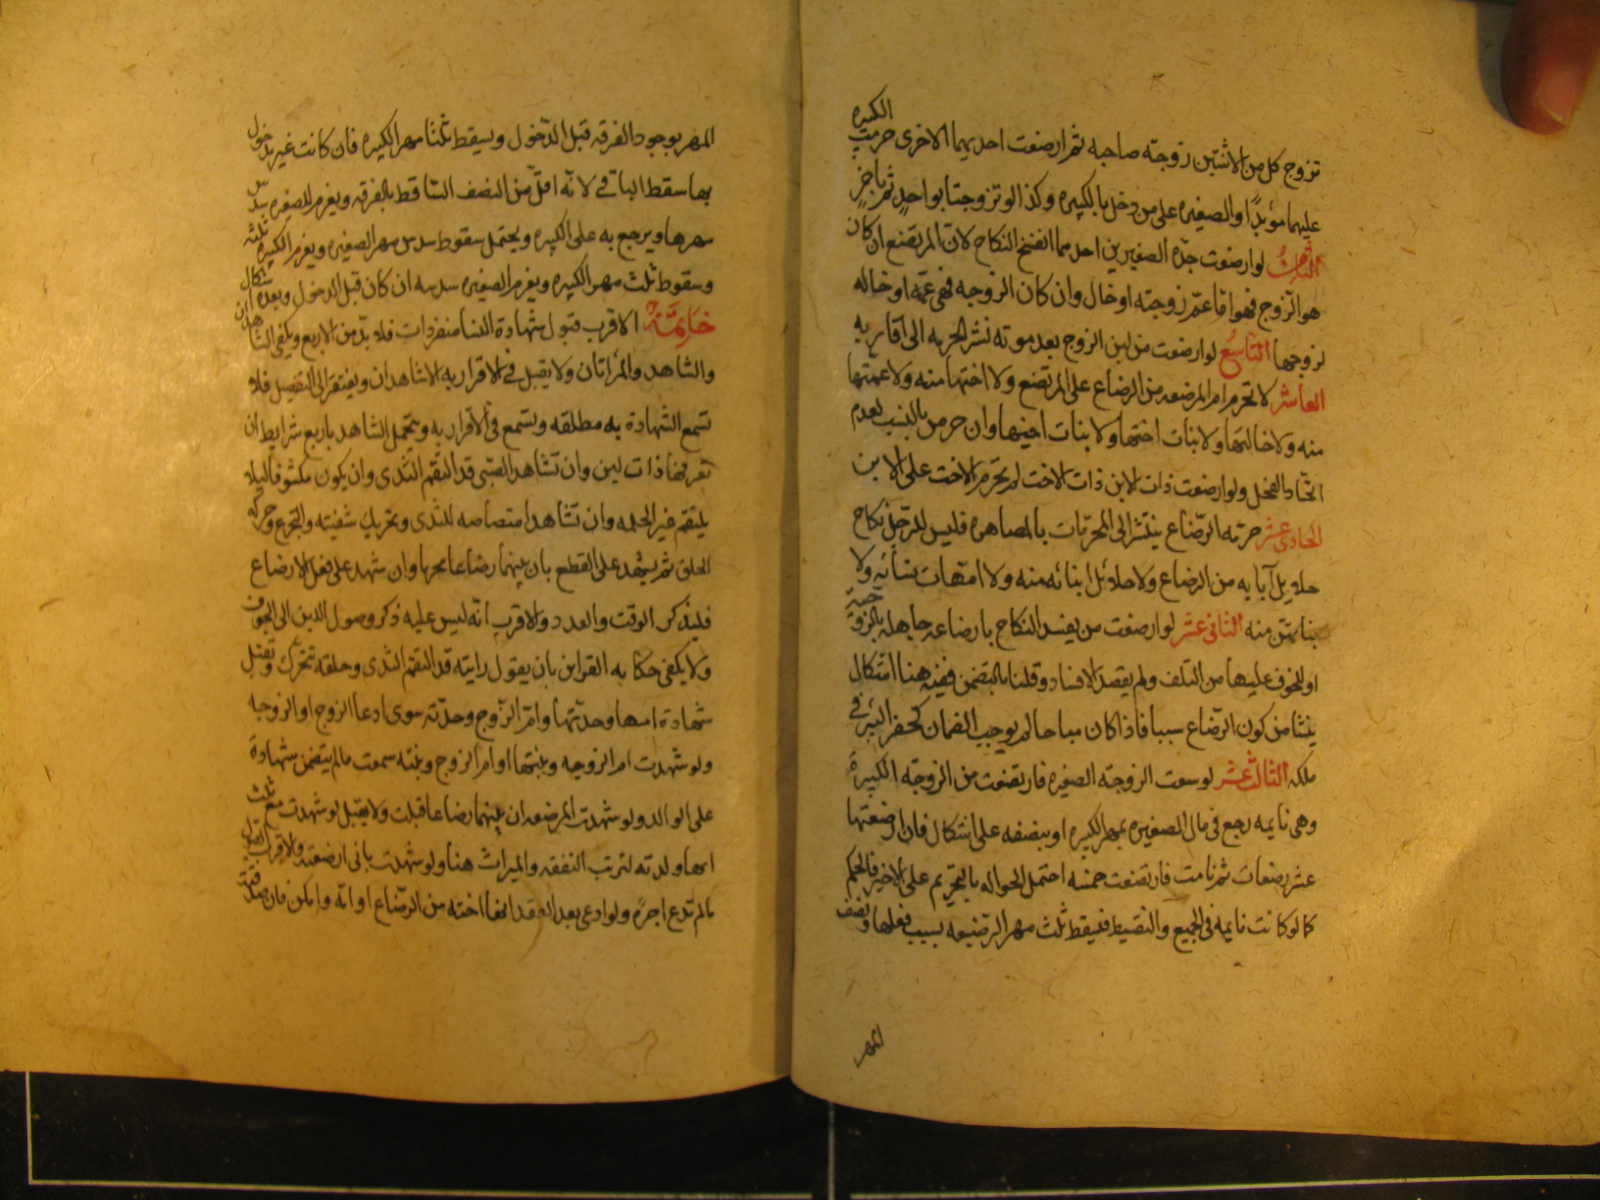 تزوج كل من الاثنتين زوجته صاحبه ثم ارضعت احديهما الاخرى حرمت الكبيره
عليهما مؤبدًا والصغيره على من دخل بالكبيره وكذا لو تزوجتا بواحدٍ ثم باخرٍ
الثامن لو ارضعت جدّه الصغيرين احدهما انفسخ النكاح لان المرتضع ان كان
هو الزوج فهو اما عمّ زوجته او خال وان كان الزوجه فهى عمّه او خاله
لزوجها التاسع لو ارضعت من لبن الزوج بعد موته نشر الحرمه الى اقاربه
العاشر لا تحرم ام المرضعه من الرضاع على المرتضع ولا اختها منه ولا عمتها
منه ولا خالتها ولا بنات اختها ولا بنات اخيها وان حرمن بالنسب لعدم
اتحاد الفحل ولو ارضعت ذات الابن ذات الاخت لم تحرم الاخت على الابن
الحادى عشر حرمه الرّضاع ينتشر الى المحرّمات بالمصاهره فليس للرّجل نكاح
حلايل آبايه من الرضاع ولا حلائل ابنائه منه ولا امّهات نسائه ولا
بناتهن منه الثانى عشر لو ارضعت من يفسد النكاح بارضاعه جاهله بالزوجيّة
او للخوف عليها من التلف ولم يقصد الافساد وقلنا بالتضمين ففيه هنا اشكال
ينشا من كون الرّضاع سببا فاذا كان مباحا لم يوجب الضمان كحفر البئر فى
ملكه الثالث عشر لو سعت الزوجه الصغيره فارتضعت من الزوجه الكبيرة
وهى نايمه رجع فى مال الصغيره بمهر الكبيره او بنصفه على اشكال فان ارضعتها
عشر رضعات ثم نامت فارتضعت خمسه احتمل الحواله بالتحريم على الاخير فالحكم
كما لو كانت نايمه فى الجميع والتقسيط فيسقط ثلث مهر الرّضيعه بسبب فعلها ونصف
المهر
المهر بوجود الفرقه قبل الدّخول ويسقط ثلثا مهر الكبيره فان كانت غير مدخول
بها سقط الباقى لانّه اقلّ من النصف الساقط بالفرقه ويغرم للصغيره سدس
مهرها ويرجع به على الكبيره ويحتمل سقوط سدس مهر الصغيره ويغرم الكبيره ثلثه
وسقوط ثلث مهر الكبيره ويغرم الصغيره سدسه ان كان قبل الدخول وبعده اشكال
خاتمة الاقرب قبول شهادة النسا منفردات فلا بدّ من الاربع ويكفى الشاهدان
والشاهد والمرأتان ولا يقبل فى الاقرار به الا شاهدان ويفتقر الى التفصيل فلا
تسمع الشهادة به مطلقه وتسمع فى الاقرار به ويتحمل الشاهد باربع شرايط ان
تعرفها ذات لبن وان تشاهد الصبى قد التقم الثدى وان يكون مكشوفا لئلا
يلتقم غير الحلمه وان تشاهد امتصاصه للثدى وتحريك شفتيه والتجرع وحركه
الحلق ثم يشهد على القطع بان بينهما رضاعا محرما وان شهد على فعل الارضاع
فليذكر الوقت والعدد والاقرب انّه ليس عليه ذكر وصول اللبن الى الجوف
ولا يكفى حكايه القراين بان يقول رايته قد التقم الثدى وحلقه تتحرك وتقبل
شهادة امها وجدّتها وام الزّوج وجدّته سوى ادعا الزوج او الزوجه
ولو شهدت ام الزوجه وبنتها او ام الزوج وبنته سمعت ما لم يتضمن شهادة
على الوالد ولو شهدت المرضعه ان بينهما رضاعا قبلت ولا يقبل لو شهدت مع ثلث
انها ولدته لترتب النفقه والميراث هنا ولو شهدت بانى ارضعته والاقرب القبول
ما لم تدع اجرة ولو ادعى بعد العقد انها اخته من الرّضاع او امّه وامكن فان صدقته